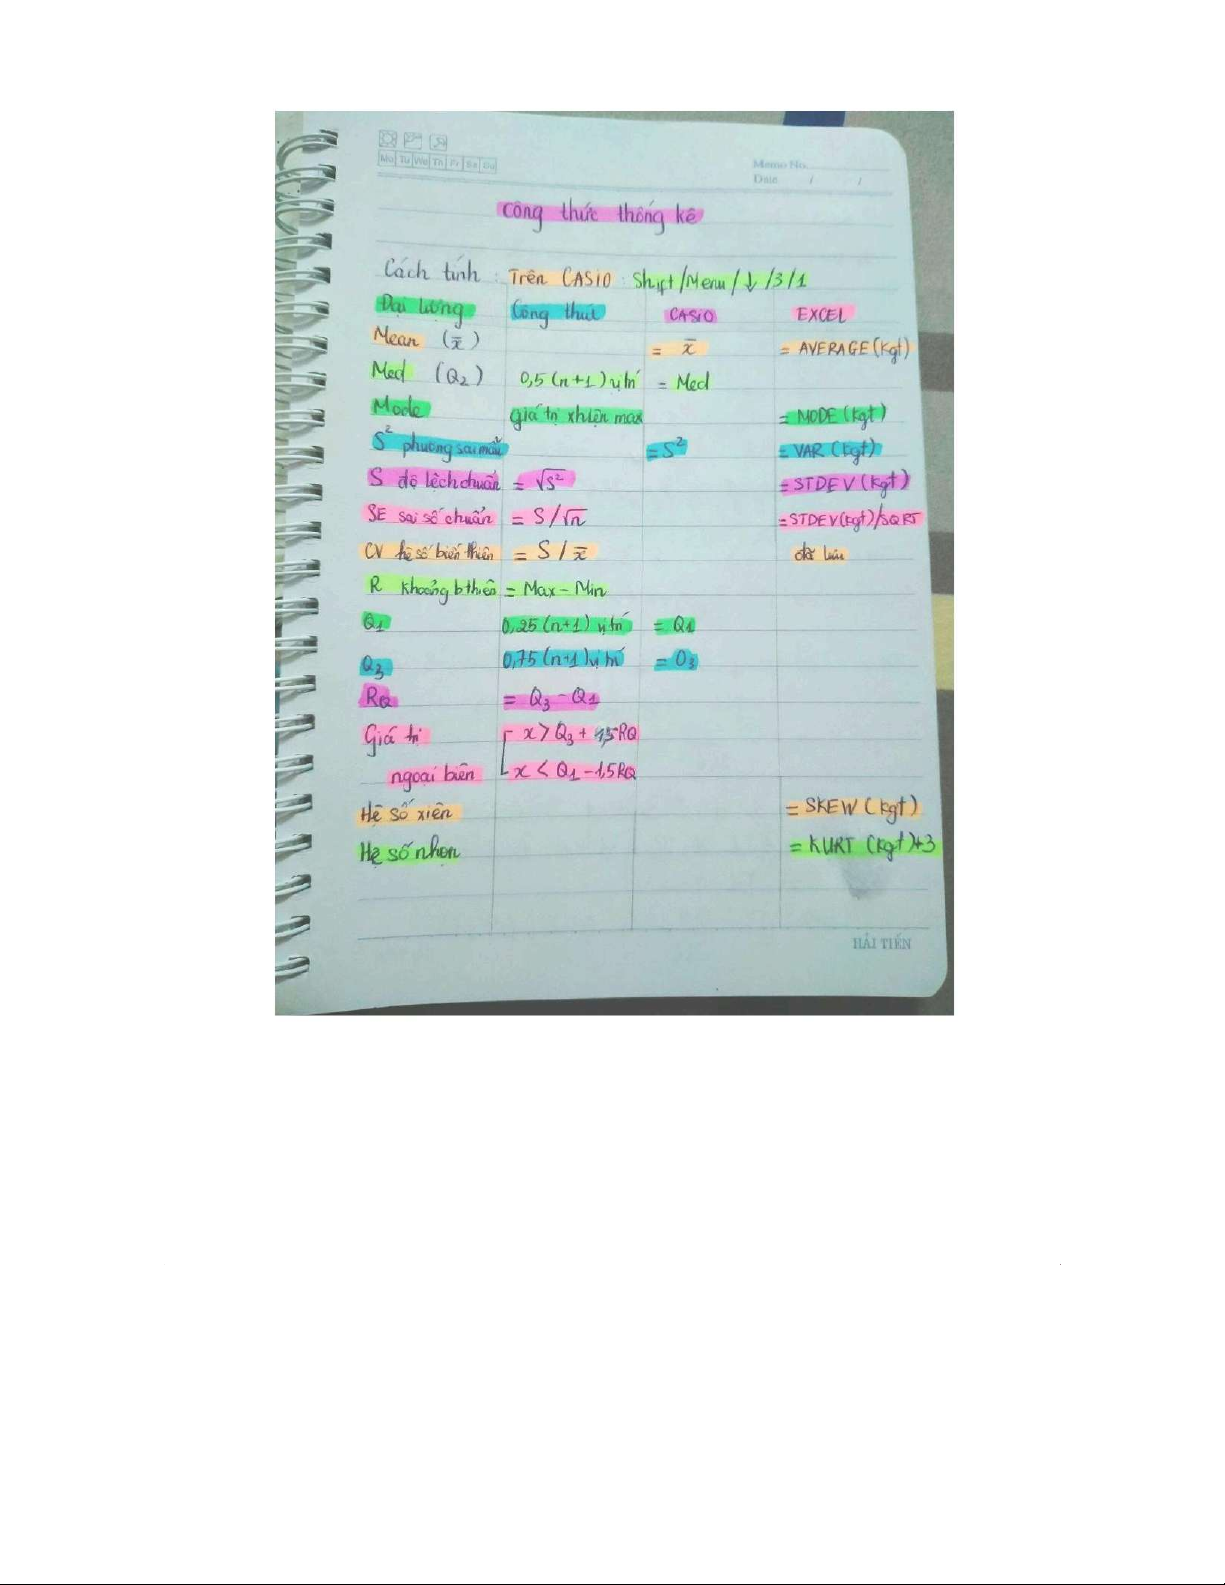 Mo Tu We Th Fr Sa Su
Memo No.
Date / /
Công thức thống kê
Cách tính : Trên CASIO : Shift/Menu/↓/3/1
Đại lượng Công thức CASIO EXCEL
Mean (x̄) = x̄ = AVERAGE(kgt)
Med (Q₂) 0,5(n+1) vị trí = Med
Mode giá trị xhiện max = MODE(kgt)
S² phương sai mẫu = S² = VAR(kgt)
S độ lệch chuẩn = √S² = STDEV(kgt)
SE sai số chuẩn = S/√n =STDEV(kgt)/SQRT
CV hệ số biến thiên = S/x̄
R khoảng bthiên = Max – Min
Q₁ 0,25(n+1) vị trí = Q₁
Q₃ 0,75(n+1) vị trí = Q₃
RQ = Q₃ – Q₁
Giá trị x > Q₃ + 1,5RQ
ngoại biên x < Q₁ – 1,5RQ
Hệ số xiên = SKEW(kgt)
Hệ số nhọn = KURT(kgt)+3
HẢI TIẾN